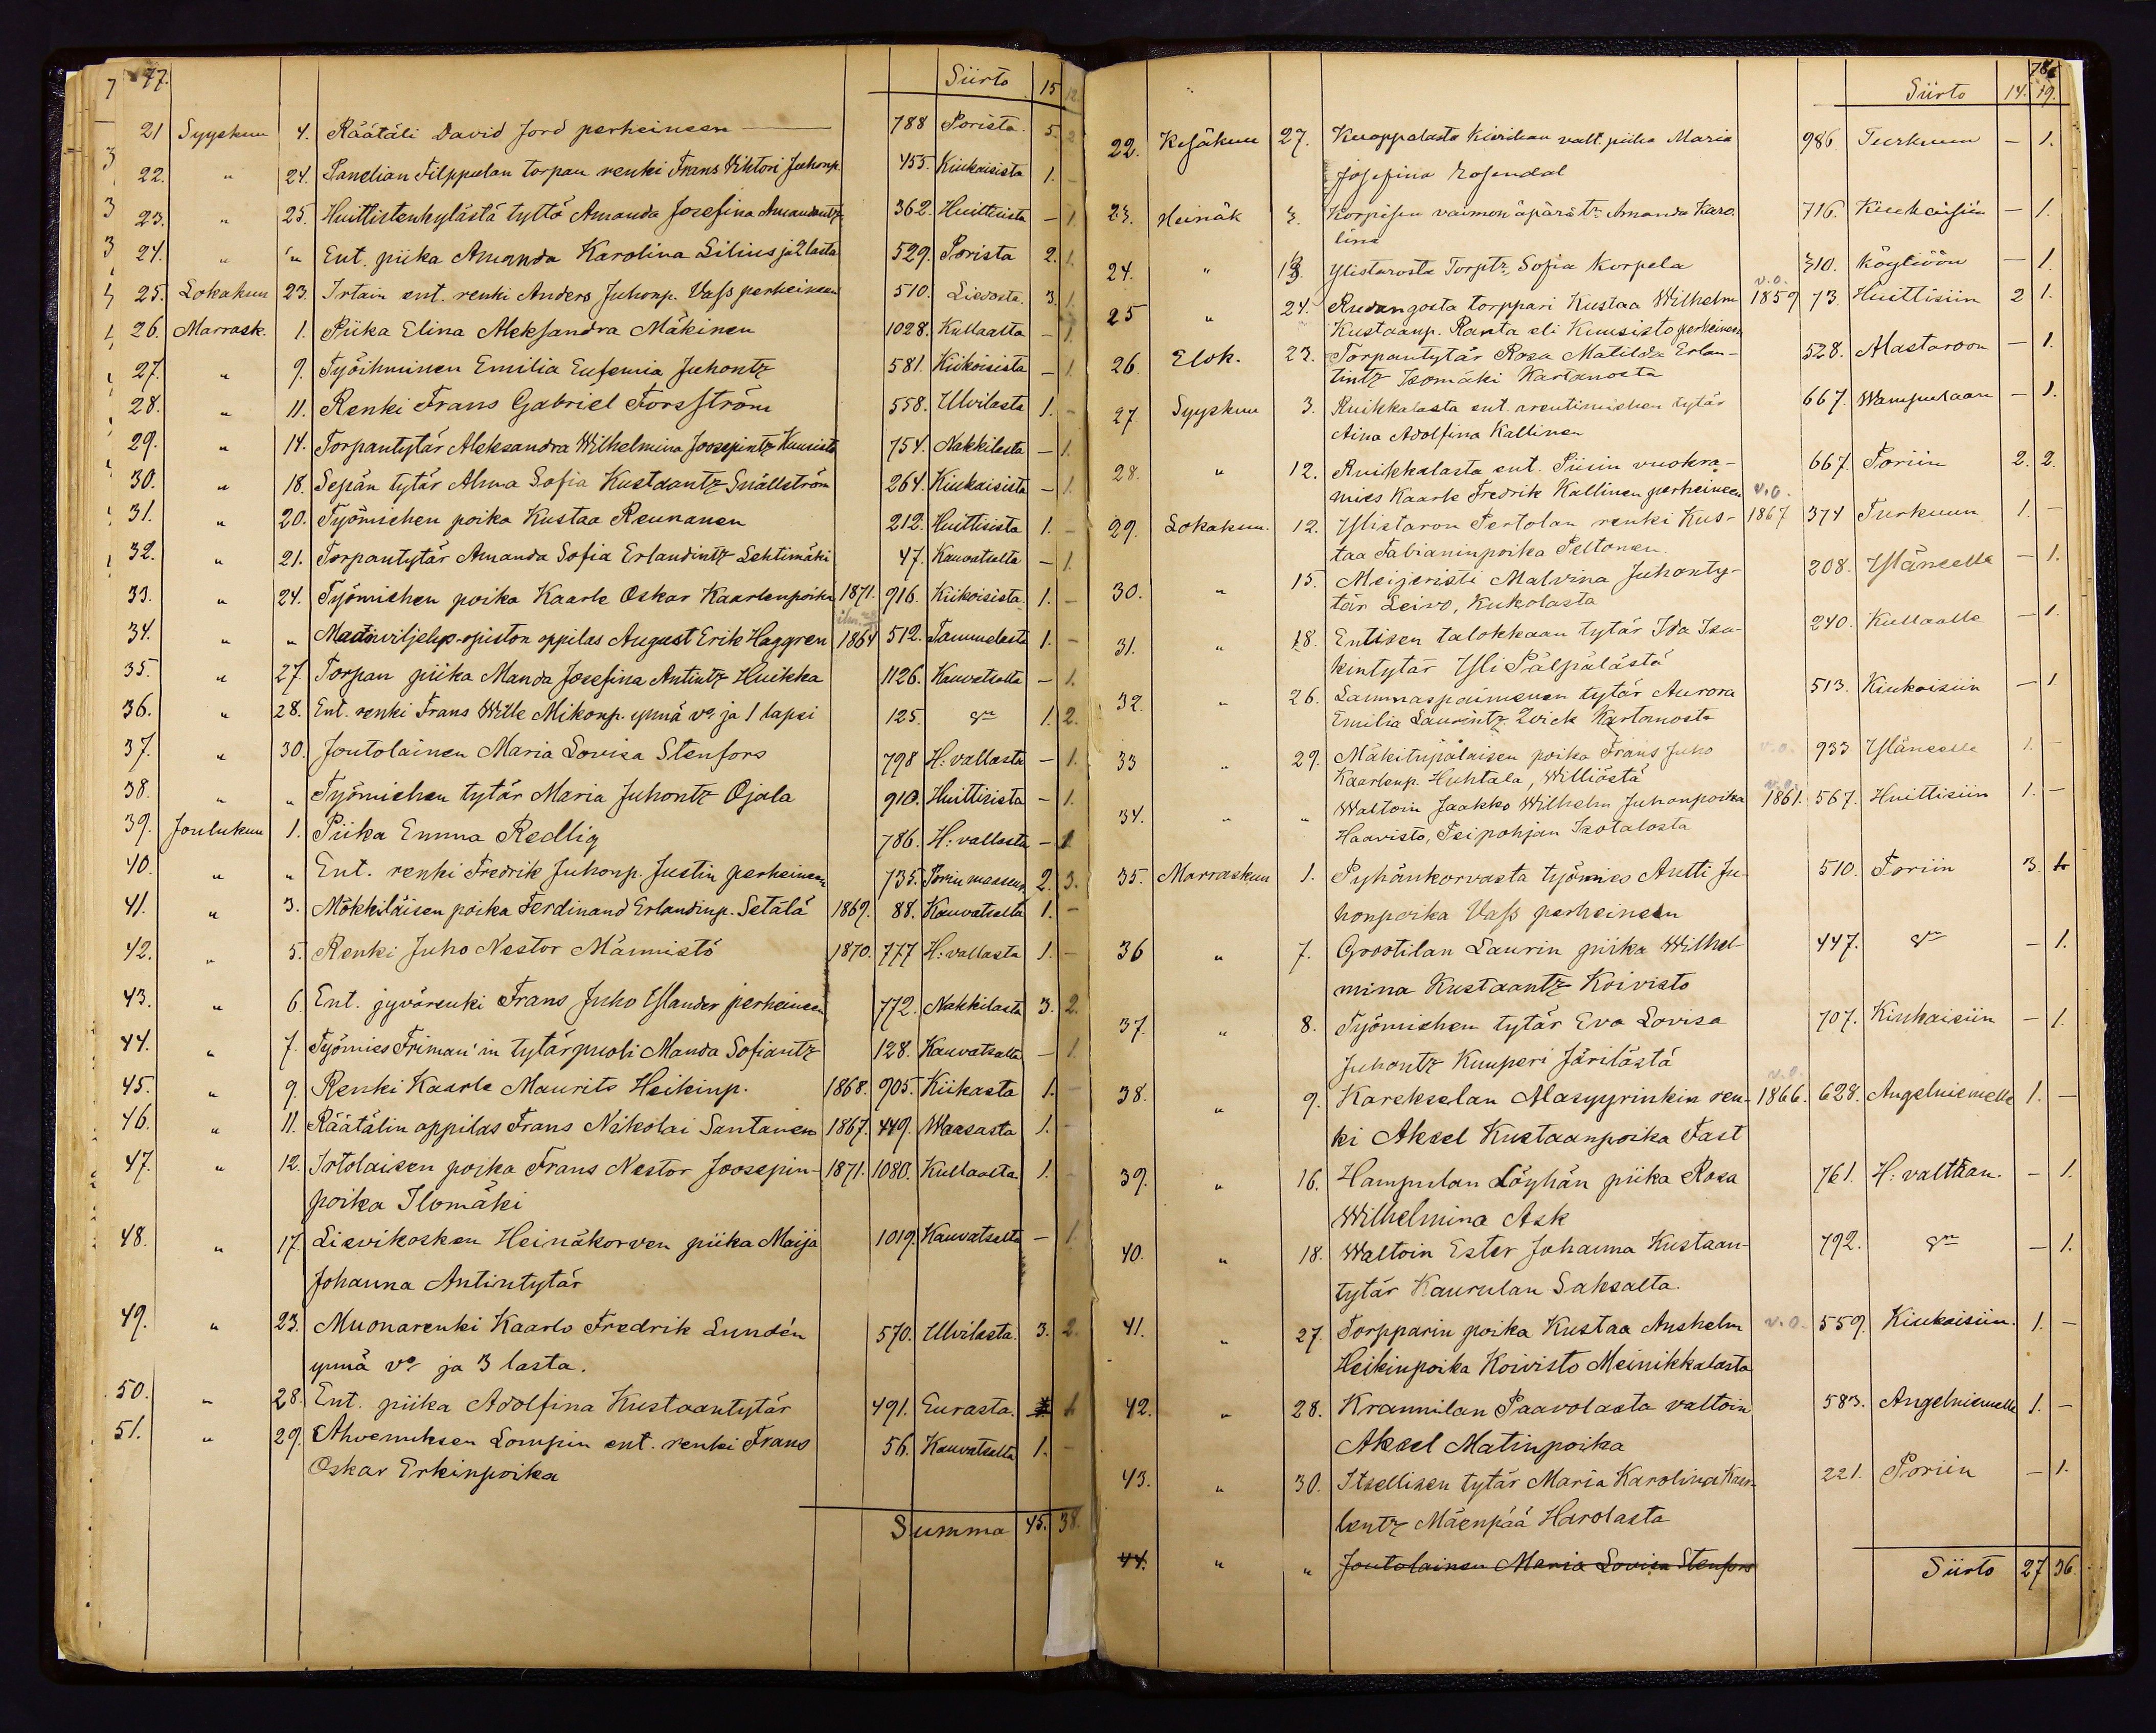 77.
Siirto 15 12
21 Syyskuu 4. Räätäli David Jord perheineen 788 Porista. 5. 2
22. " 24. Panelian Filppulan torpan renki Frans Wihtori Juhonp. 455. Kiukaisista 1. -
23. " 25. Huittistenkylästä tyttö Amanda Josefina Amandantr 362. Huittisista - 1
24. " " Ent. piika Amanda Karolina Silius ja 2 lasta 529. Porista 2. 1.
25. Lokakuu 23. Irtain ent. renki Anders Juhonp. Vass perheineen 510. Liedosta. 3. 1.
26. Marrask. 1. Piika Elina Aleksandra Mäkinen 1028. Kullaalta - 1.
27. " 9. Työihminen Emilia Eufemia Juhontr 581. Kiikoisista - 1.
28. " 11. Renki Frans Gabriel Forsström 558. Ulvilasta 1. -
29. " 14. Torpantytär Aleksandra Wilhelmina Joosepintr Kuusisto 754. Nakkilasta - 1.
30. " 18. Sepän tytär Alma Sofia Kustaantr Snällström 264. Kiukaisista - 1.
31. " 20. Työmiehen poika Kustaa Reunanen 212. Huittisista 1. -
32. " 21. Torpantytär Amanda Sofia Erlandintr Lehtimäki 47. Kauvatsalta - 1.
33. " 24. Työmiehen poika Kaarle Oskar Kaarlenpoika 1871. 916. Kiikoisista. 1. -
34. " " Maanviljelys-opiston oppilas August Erik Haggren 1864 512. Tammelasta 1. -
35. " 27. Torpan piika Manda Josefina Antintr Huikka 1126. Kauvatsalta - 1.
36. " 28. Ent. renki Frans Wille Mikonp. ynnä vo ja 1 lapsi 125. 1. 2.
37. " 30. Joutolainen Maria Lovisa Stenfors 798 H:vallasta - 1.
38. " " Työmiehen tytär Maria Juhontr Ojala 910. Huittisista - 1.
39. Joulukuu 1. Piika Emma Redlig 786. H:vallasta - 1
40. " " Ent. renki Fredrik Juhonp. Justin perheineen 735. Porin maaseur. 2. 3.
41. " 3. Mökkiläisen poika Ferdinand Erlandinp. Setälä 1869. 88. Kauvatsalta 1. -
42. " 5. Renki Juho Nestor Männistö 1870. 777 H:vallasta 1. -
43. " 6. Ent. jyvärenki Frans Juho Yslander perheineen 772. Nakkilasta 3. 2.
44. " 7. Työmies Friman'in tytärpuoli Manda Sofiantr 128. Kauvatsalta - 1.
45. " 9. Renki Kaarle Maurits Heikinp. 1868. 905. Kiikasta 1. -
46. " 11. Räätälin oppilas Frans Nikolai Santanen 1867. 449. Waasasta 1. -
47. " 12. Irtolaisen poika Frans Nestor Joosepin- 1871. 1080. Kullaalta. 1.
poika Ilomäki
48. " 17. Lievikosken Heinäkorven piika Maija 1019. Kauvatsalta - 1.
Johanna Antintytär
49. " 23. Muonarenki Kaarlo Fredrik Lundén 570. Ulvilasta. 3. 2.
ynnä vo ja 3 lasta.
50. " 28. Ent. piika Adolfina Kustaantytär 491. Eurasta. 1
51. " 29. Ahvenuksen Lompin ent. renki Frans 56. Kauvatsalta 1. -
Oskar Erkinpoika
Summa 45. 38.
78.
Siirto 14. 19.
22. Kesäkuu 27. Kuoppalasta kirkon valt. piika Maria 986. Turkuun - 1.
Josefina Rosendal
23. Heinäk 3. Korpisen vaimon äpärätr Amanda Karo- 716. Kiukaisiin - 1.
lina
24. " 13. Ylistarosta Torptr, Sofia Korpela 310. Köyliöön - 1.
25 " 24. Rudangosta torppari Kustaa Wilhelm v.o. 1859 73. Huittisiin 2 1.
Kustaanp. Ranta eli Kuusisto perheineen
26. Elok. 23. Torpantytär Rosa Matilda Erlan- 528. Alastaroon - 1.
tintr Isomäki Kartanosta
27 Syyskuu 3. Kuikkalasta ent. arentimiehen tytär 667. Wampulaan - 1.
Aina Adolfina Kallinen
28. " 12. Kuikkalasta ent. Piisin vuokra- 667. Poriin 2. 2.
mies Kaarle Fredrik Kallinen perheineen
29. Lokakuu. 12. Ylistaron Pertolan renki Kus- v.o. 1867 374 Turkuun 1. -
taa Fabianinpoika Peltonen.
30. " 15. Meijeristi Malvina Juhonty- 208. Yläneelle - 1.
tär Leivo, Kukolasta
31. " 18. Entisen talokkaan tytär Ida Isa- 240. Kullaalle - 1.
kintytär Yli Pälpälästä
32. " 26. Lammaspaimenen tytär Aurora 513. Kiukaisiin - 1
Emilia Laurintr Qvick Kartanosta
33 " 29. Mäkitupalaisen poika Frans Juho v.o. 933 Yläneelle 1. -
Kaarlenp. Huhtala, Williöstä
34. " " Waltoin Jaakko Wilhelm Juhonpoika v.o. 1861. 567. Huittisiin 1. -
Haavisto, Peipohjan Isotalosta
35. Marraskuu 1. Pyhänkorvasta työmies Antti Ju- 510. Poriin 3. 1
honpoika Vass perheineen
36 " 7. Grootilan Laurin piika Wilhel- 447. - 1.
mina Kustaantr Koivisto
37. " 8. Työmiehen tytär Eva Lovisa 707. Kiukaisiin - 1.
Juhontr Kuuperi Järilästä
38. " 9. Karekselan Masyyrinkin ren- v.o. 1866. 628. Angelniemelle 1. -
ki Aksel Kustaanpoika Fast
39. " 16. Hampulan Löyhän piika Rosa 761. H:valtaan. - 1.
Wilhelmina Ask
40. " 18. Waltoin Ester Johanna Kustaan- 792. - 1.
tytär Kaurulan Saksalta.
41. " 27. Torpparin poika Kustaa Anshelm v.o. 559. Kiukaisiin. 1. -
Heikinpoika Koivisto Meinikkalasta
42. " 28. Krannilan Paavolasta valtoin 583. Angelniemelle 1. -
Aksel Matinpoika
43. " 30. Itsellisen tytär Maria Karolina Kaar- 221. Poriin - 1.
lentr Mäenpää Harolasta
44. " " Joutolainen Maria Lovisa Stenfors
Siirto 27 36.